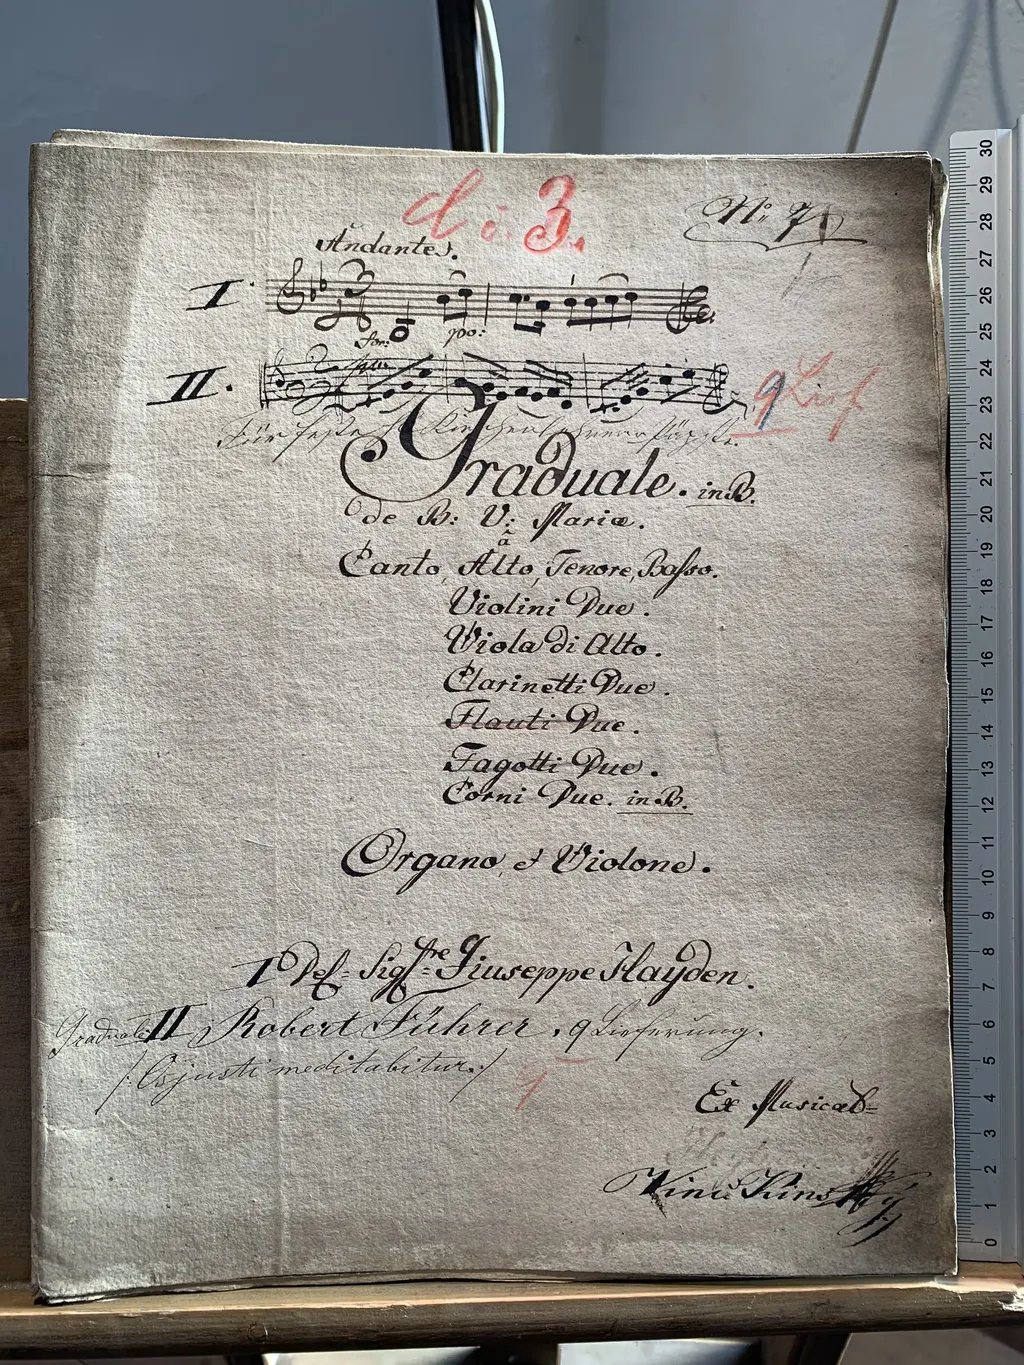 č. 3.
No. 71
Andante.
I.
for: po:
II.
9 Lief
Für feste
Graduale. in B.
de B: V: Mariæ.
â
Canto, Alto, Tenore, Basso.
Violini Due.
Viola di Alto.
Clarinetti Due.
Flauti Due.
Fagotti Due.
Corni Due. in B.
Organo, et Violone.
I Del Sigre Giuseppe Hayden.
Graduale II Robert Führer, 9 Lieferung.
/: Os justi meditabitur. /
1
Ex Musical=
30
29
28
27
26
25
24
23
22
21
20
19
18
17
16
15
14
13
12
11
10
9
8
7
6
5
4
3
2
1
0